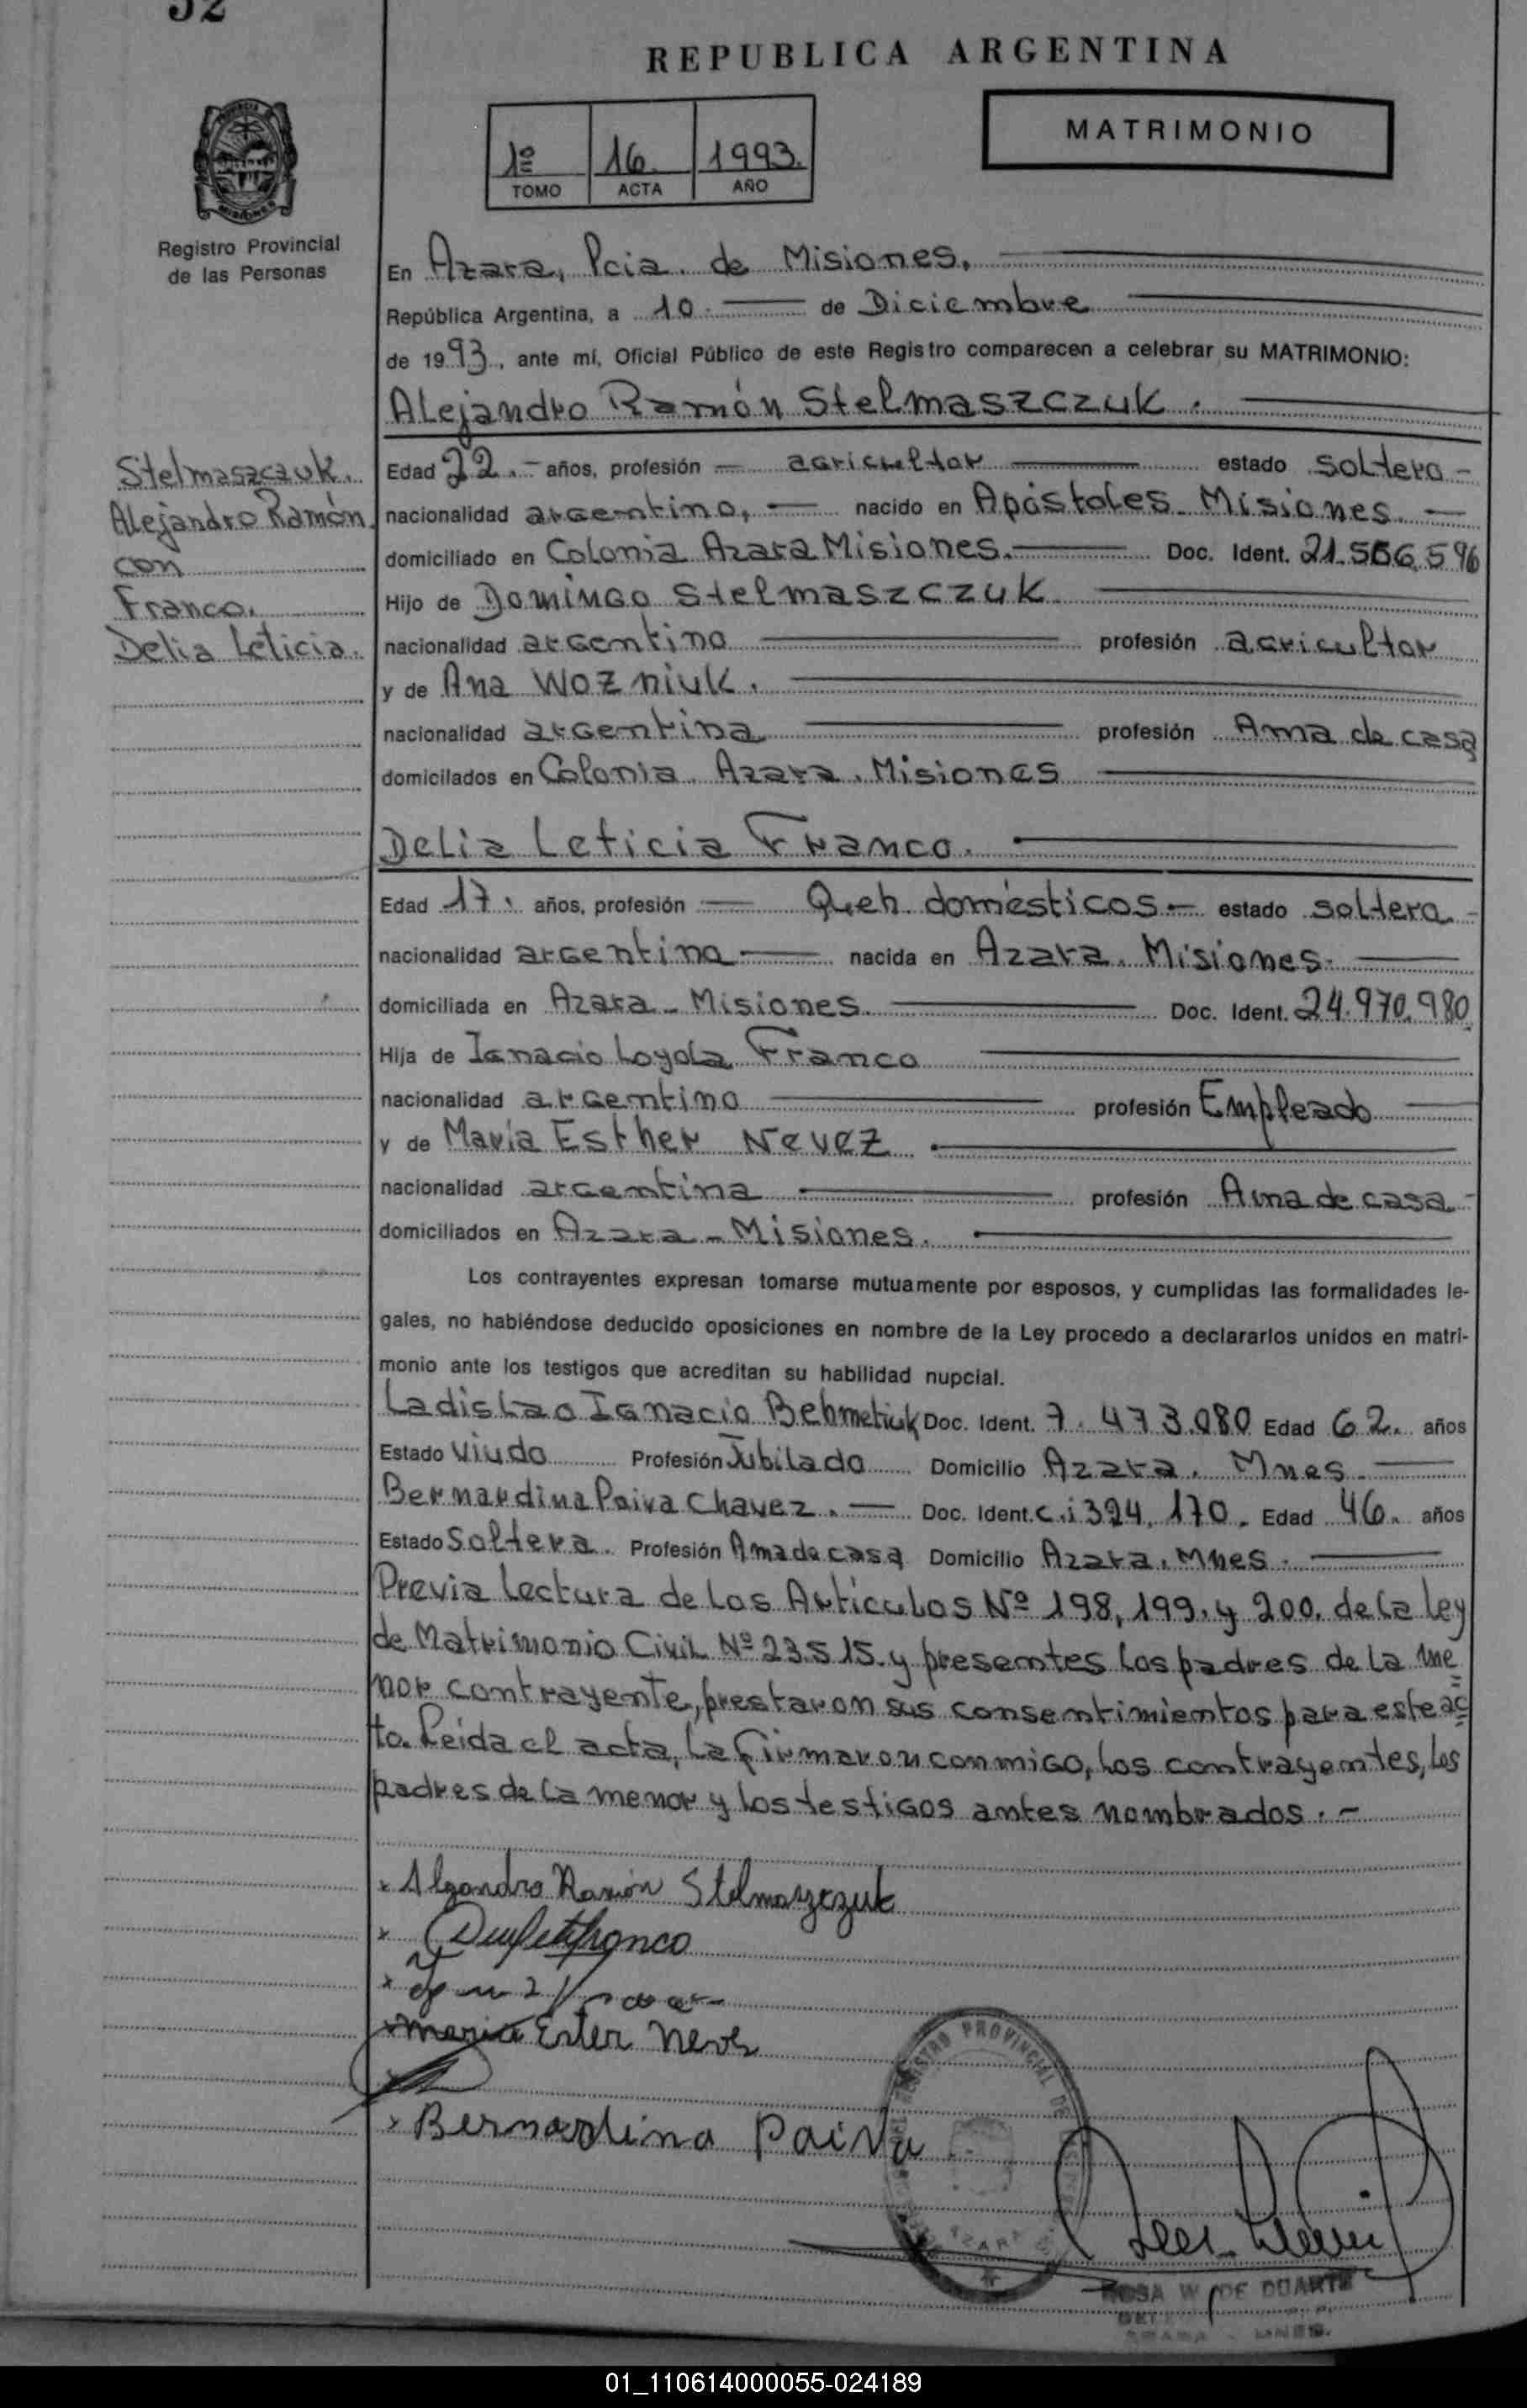 32
REPUBLICA ARGENTINA
MATRIMONIO
1º 16. 1993.
TOMO ACTA AÑO
MISIONES
Registro Provincial
de las Personas
En Azara, Pcia. de Misiones.
República Argentina, a 10. de Diciembre
de 1993, ante mí, Oficial Público de este Registro comparecen a celebrar su MATRIMONIO:
Alejandro Ramón Stelmaszczuk.
Stelmaszczuk.
Alejandro Ramón.
con
Franco.
Delia Leticia.
Edad 22.- años, profesión — agricultor — estado soltero -
nacionalidad argentino, — nacido en Apóstoles. Misiones. —
domiciliado en Colonia Azara Misiones. — Doc. Ident. 21.566.596
Hijo de Domingo Stelmaszczuk
nacionalidad argentino profesión agricultor
y de Ana Wozniuk.
nacionalidad argentina profesión Ama de casa
domicilados en Colonia. Azara. Misiones
Delia Leticia Franco.
Edad 17. años, profesión — Queh. domésticos. — estado soltera. -
nacionalidad argentina — nacida en Azara. Misiones. —
domiciliada en Azara - Misiones. Doc. Ident. 24.970.980
Hija de Ignacio Loyola Franco
nacionalidad argentino profesión Empleado
y de María Esther Nevez
nacionalidad argentina profesión Ama de casa -
domiciliados en Azara - Misiones.
Los contrayentes expresan tomarse mutuamente por esposos, y cumplidas las formalidades le-
gales, no habiéndose deducido oposiciones en nombre de la Ley procedo a declararlos unidos en matri-
monio ante los testigos que acreditan su habilidad nupcial.
Ladislao Ignacio Behmetiuk Doc. Ident. 7.473.080 Edad 62. años
Estado Viudo Profesión Jubilado Domicilio Azara. Mnes. —
Bernardina Paiva Chavez. — Doc. Ident. C.i 324.170. Edad 46. años
Estado Soltera. Profesión Ama de casa Domicilio Azara. Mnes. —
Previa lectura de los Artículos Nº 198, 199. y 200. de la Ley
de Matrimonio Civil Nº 23.515. y presentes los padres de la me
nor contrayente, prestaron sus consentimientos para este ac
to. Leída el acta, la firmaron conmigo, los contrayentes, los
padres de la menor y los testigos antes nombrados. -
x Alejandro Ramón Stelmaszczuk
x franco
x
x Maria Ester Neves
x Bernardina Paiva
REGISTRO PROVINCIAL DE
AZARA
ROSA W. DE DUARTE
01_110614000055-024189